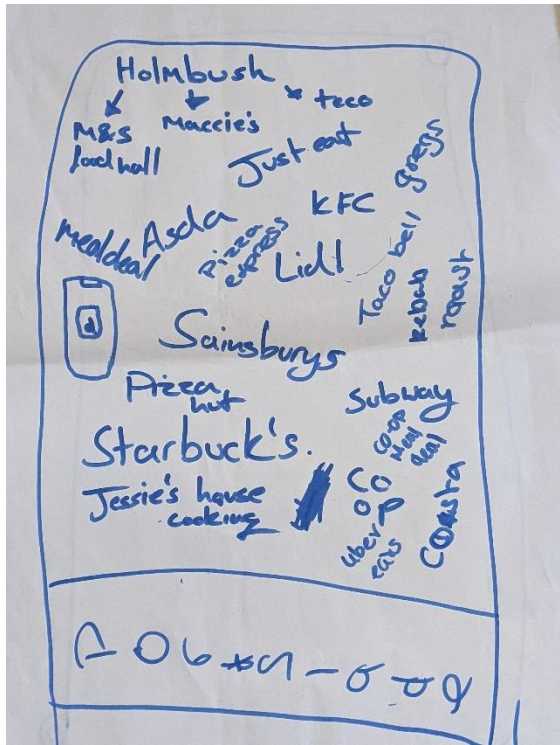 Holmbush
M&S
food hall
Maccie's
taco
Just eat
gregs
Mealdeal
Asda
Pizza
express
KFC
Lidl
Taco bell
Kebab
roast
Sainsburys
Pizza
hut
Subway
Starbuck's.
Co-op
Meal
deal
Jessie's house
cooking
CO
OP
uber
eats
Costa